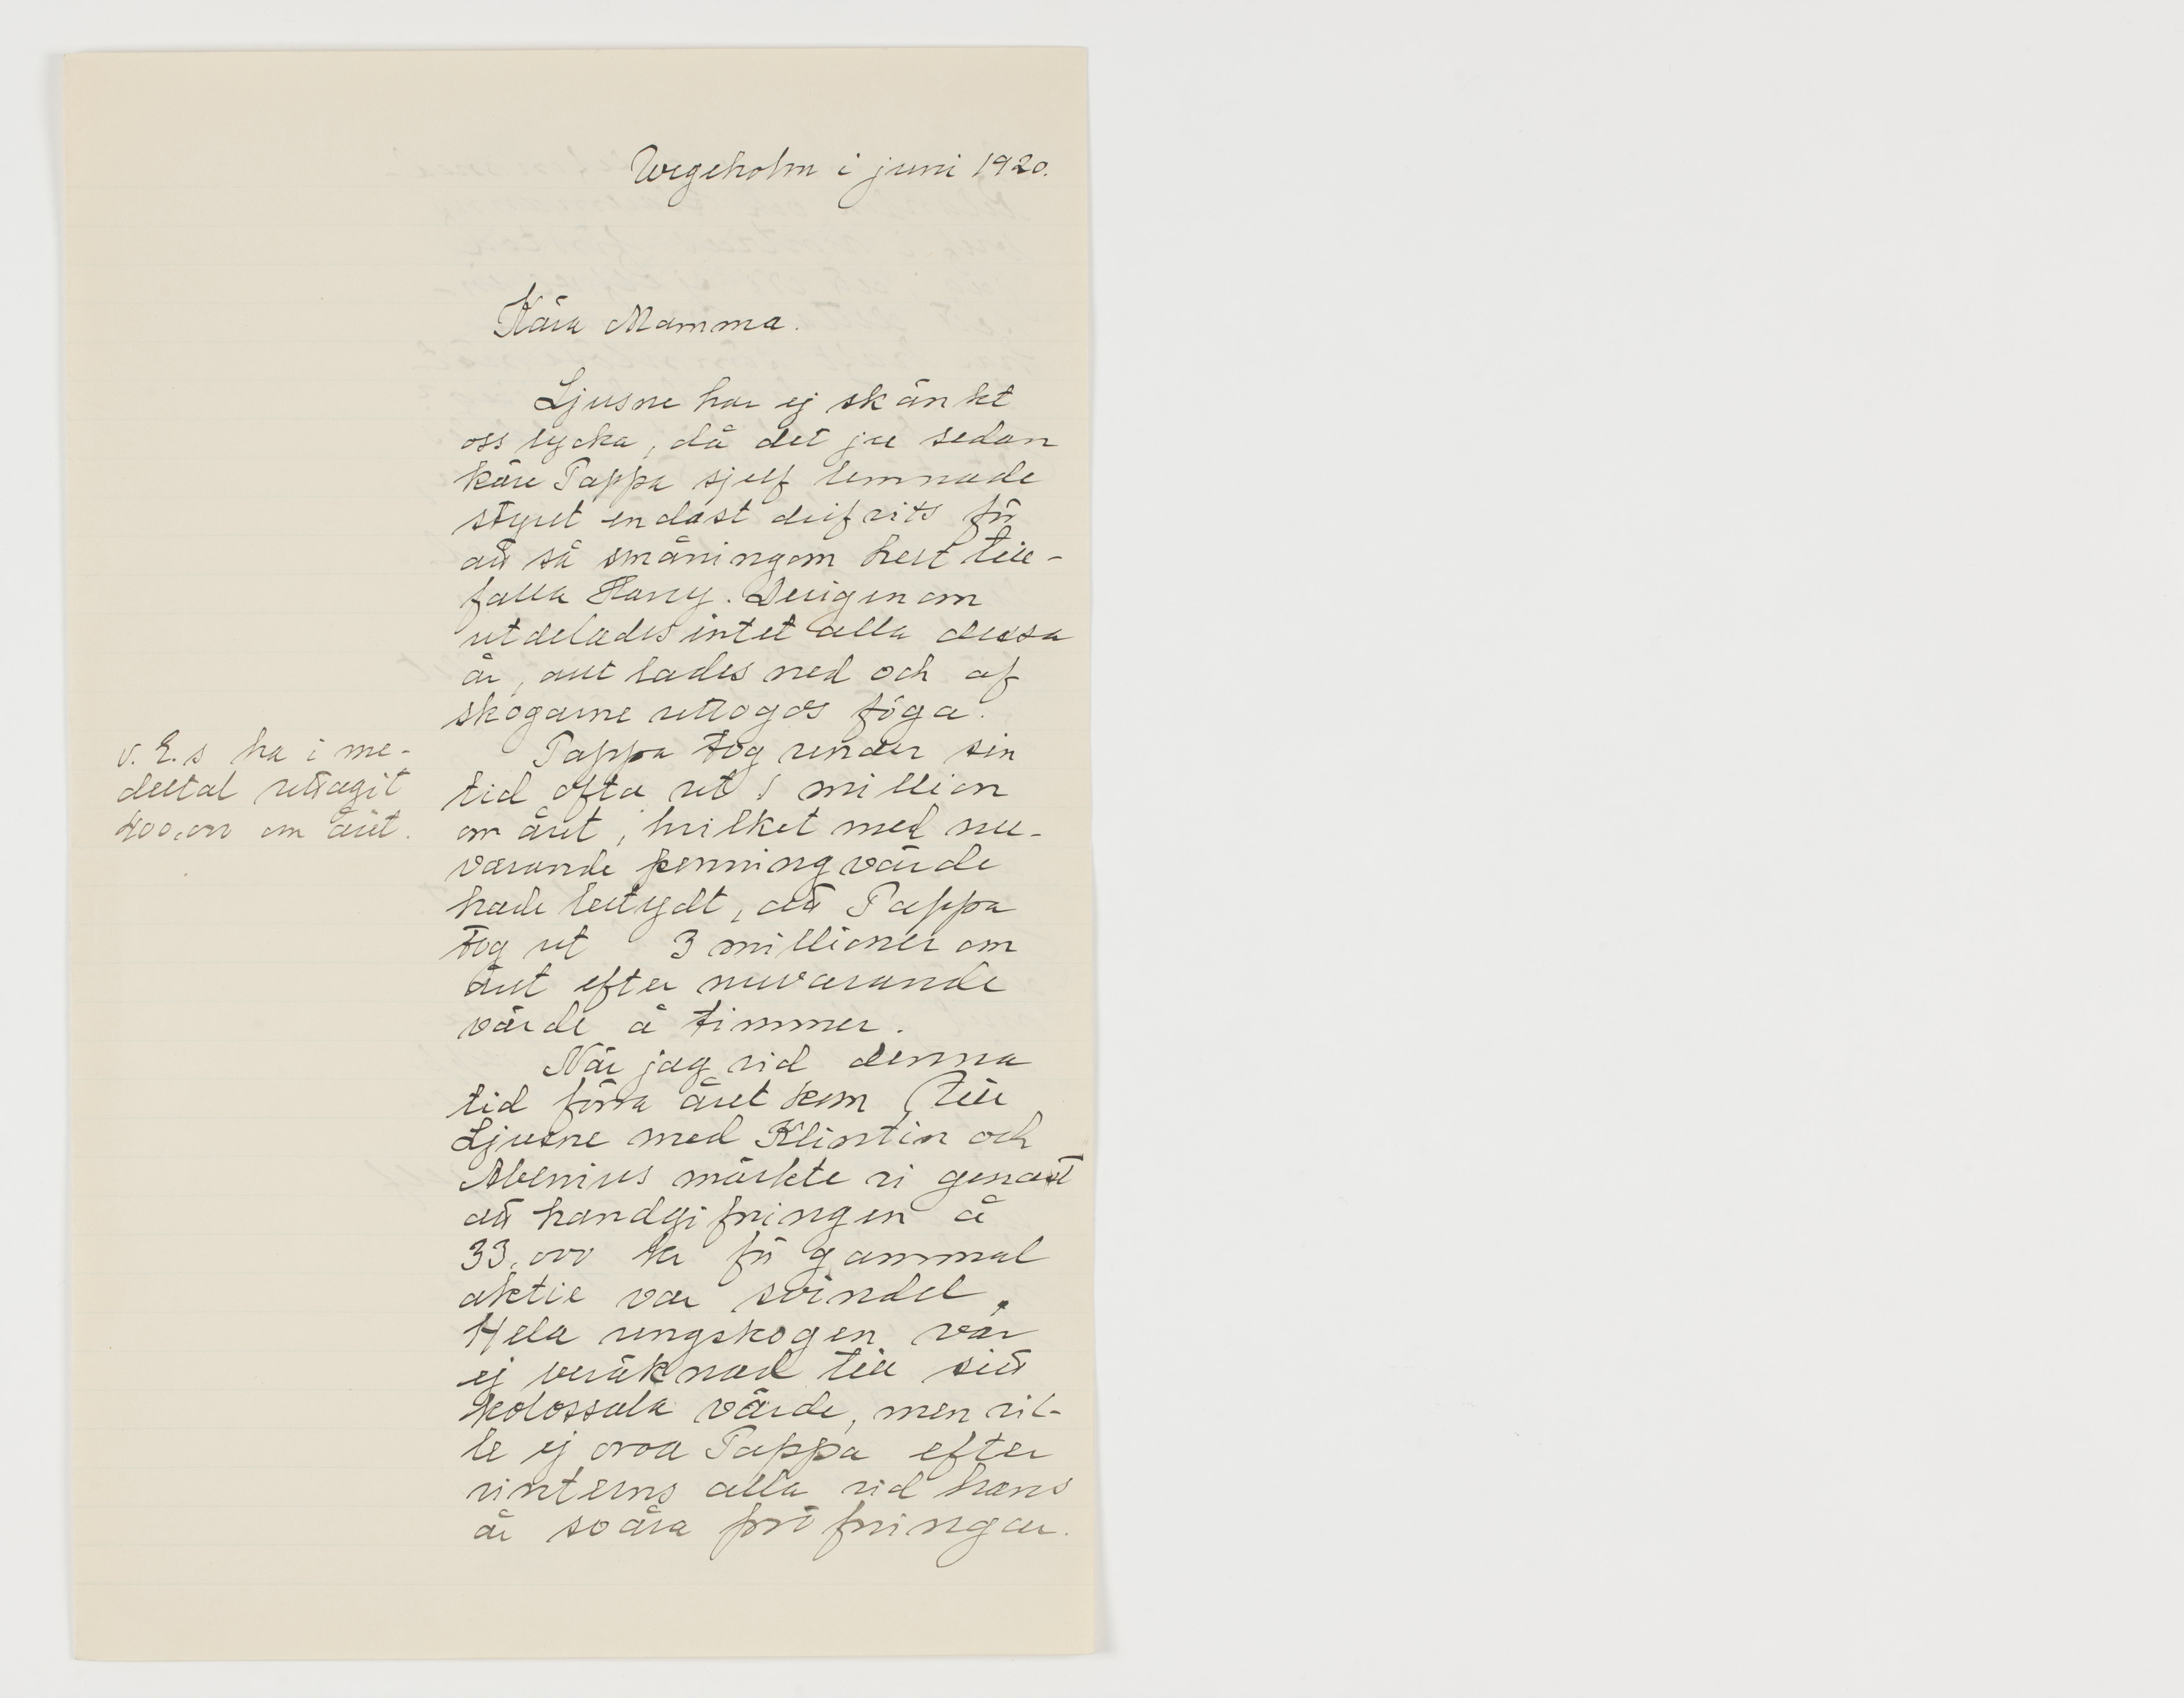 Wegeholm i juni 1920.
Kära Mamma.
Ljusne har ej skänkt
oss lycka, då det ju sedan
käre Pappa sjelf lemnade
styret endast drifvits för
att så småningom helt till-
falla Harry. Derigenom
utdelades intet alla dessa
år, allt lades ned och af
skogarne uttogos föga.
Pappa tog under sin
tid ofta ut 1 million
om året, hvilket med nu-
varande penningvärde
hade betydt, att Pappa
tog ut 3 millioner om
året efter nuvarande
värde å timmer.
v. E.s ha i me-
deltal uttagit
400,000 om året.
När jag vid denna
tid förra året kom till
Ljusne med Klintin och
Abenius märkte vi genast
att handgifningen å
33,000 kr för gammal
aktie var svindel.
Hela ungskogen var
ej beräknad till sitt
kolossala värde, men vil-
le ej oroa Pappa efter
vinterns alla vid hans
år svåra pröfningar.